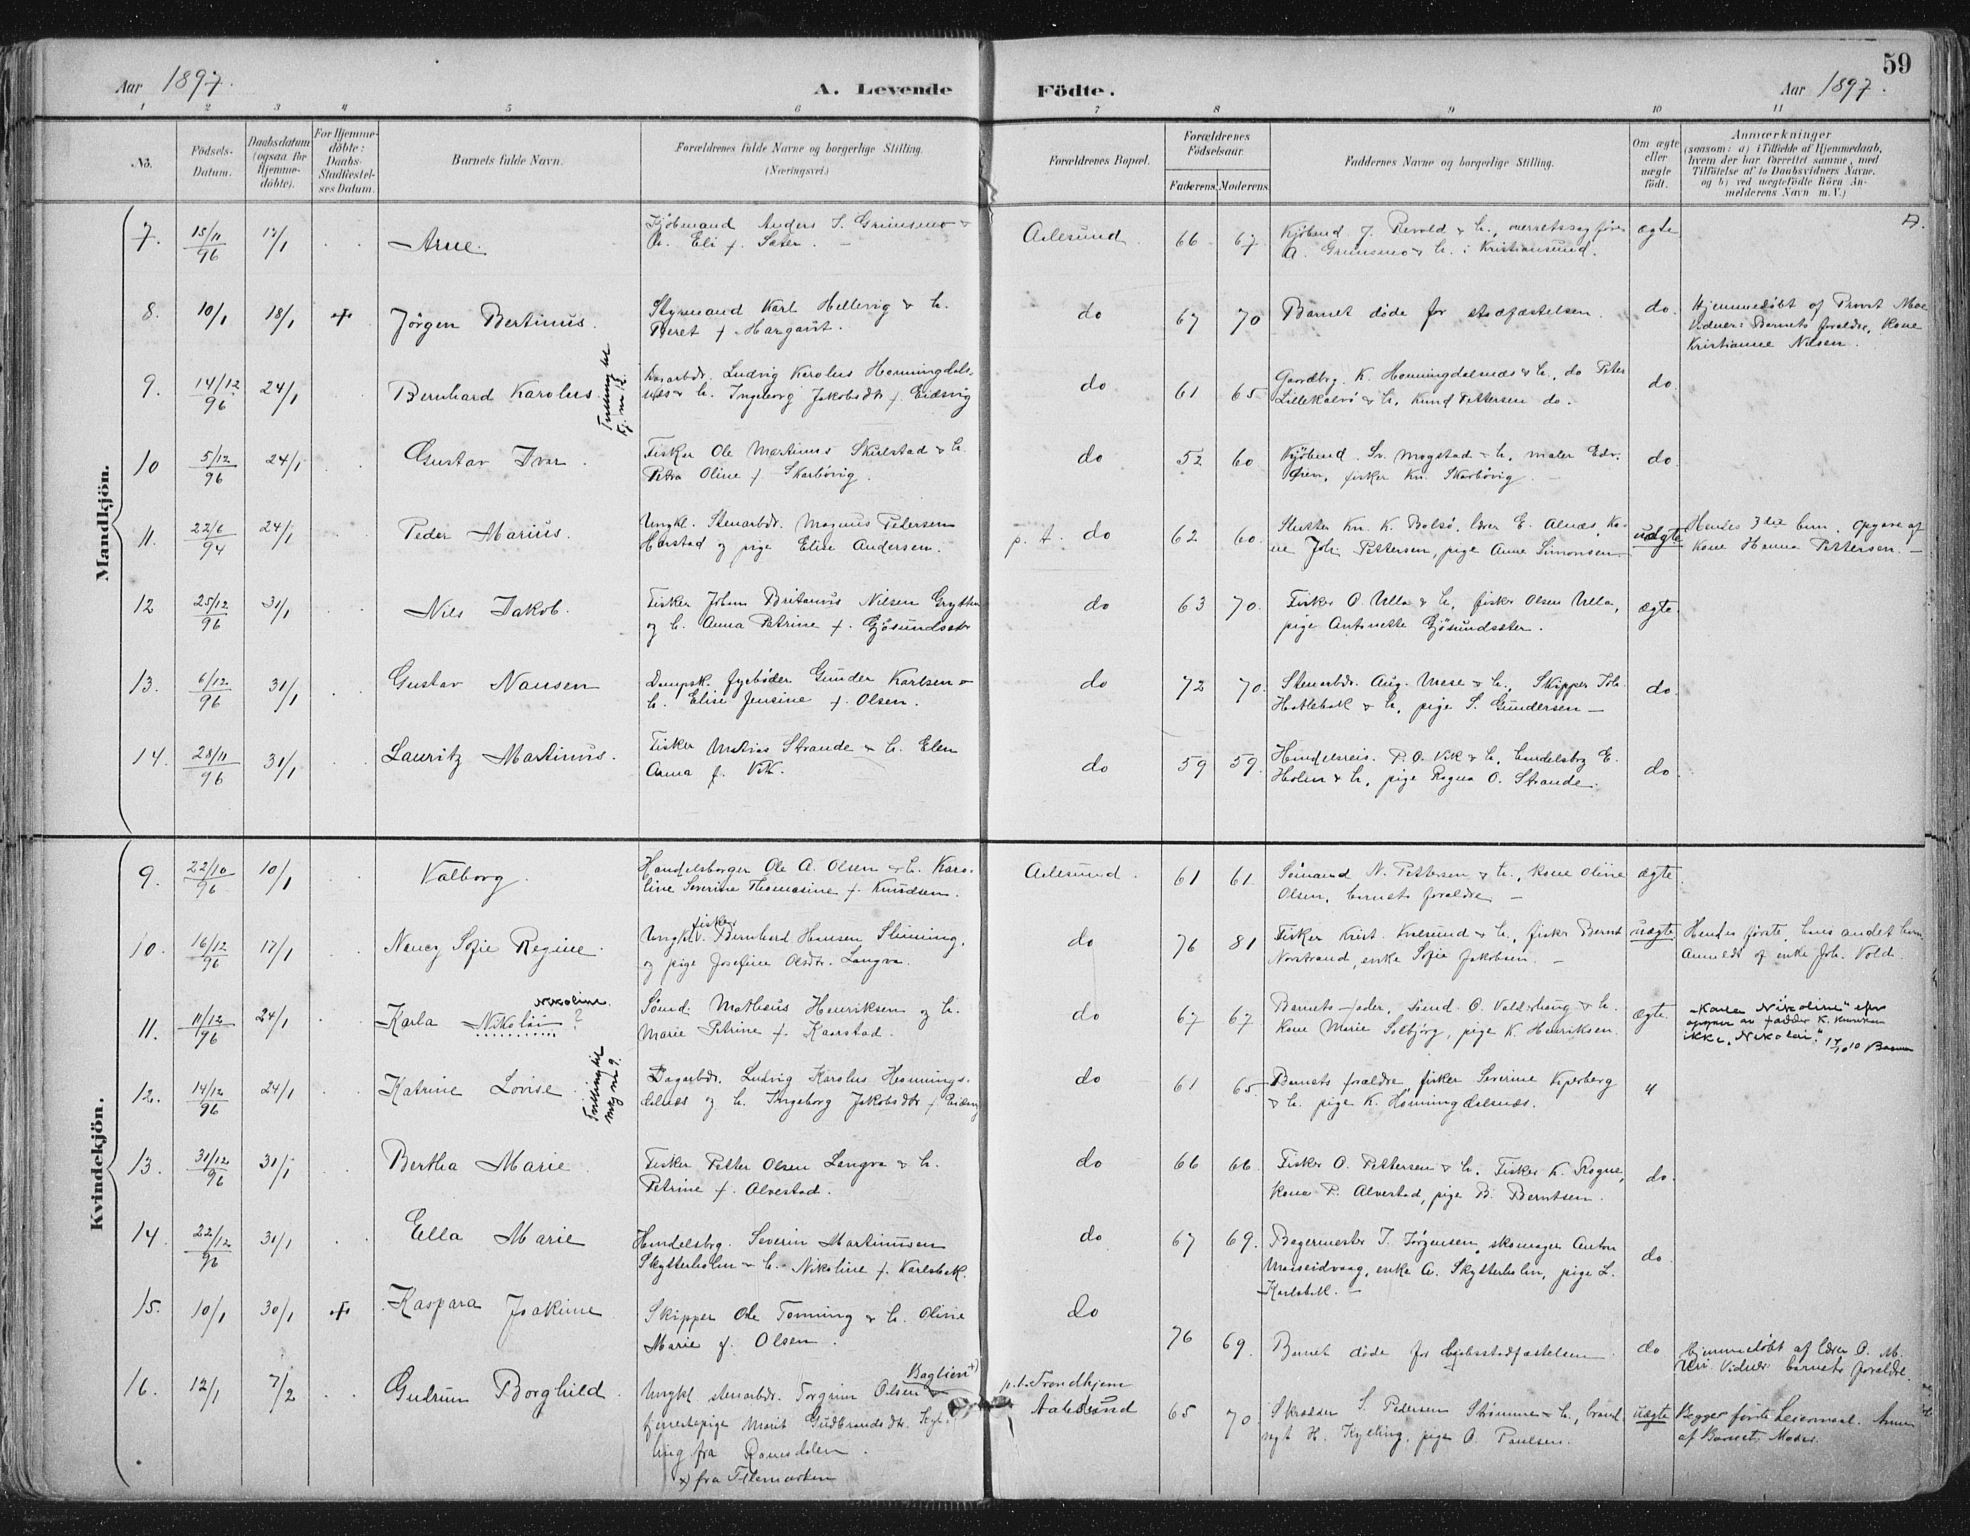 59
Aar 1897.
A. Levende
Födte.
Aar 1897.
1 2 3 4 5 6 7 8 9 10 11
Nö.
Födsels-
Datum.
Daabsdatum
(ogsaa for
Hjemme-
döbte).
For Hjemme-
döbte:
Daabs-
Stadfæstel-
ses Datum.
Barnets fulde Navn.
Forældrenes fulde Navne og borgerlige Stilling.
(Næringsvei.)
Forældrenes Bopæl.
Forældrenes
Födselsaar.
Faderens. Moderens.
Faddernes Navne og borgerlige Stilling.
Om ægte
eller
uægte
födt.
Anmærkninger
(saasom: a) i Tilfælde af Hjemmedaab,
hvem der har forrettet samme, med
Tilföielse af to Daabsvidners Navne,
og b) ved uægtefödte Börn An-
melderens Navn m. V.)
Mandkjön.
7. 15/11 96 17/1 Arne.
Kjöbmand Anders S. Grimsmo &
h. Eli f. Sæter.
Aalesund 66 67
Kjöbmd J. Revold & h., overretssagförer
A. Grimsmo & h. i Kristiansund.
ægte
8. 10/1 18/1 + Jörgen Bertinus.
Styrmand Karl Hellevig & h.
Beret f. Hargaut.
do 67 70
Barnet döde för stadfæstelsen.
do.
Hjemmedöbt af Provst Moe
Vidner: Barnets forældre, kone
Kristianne Nilsen.
9. 14/12 96 24/1 Bernhard Karolus.
Tvilling til
Kj. nr 12.
Ludvig Karolus Honningdals-
næs & h. Ingeborg Jakobsdtr f. Eidsvig
do 61 65
Gaardbrg. K. Honningdalsnæs & h., do Peter
Lillekalvö & h., Knud Pettersen do.
do.
10 5/12 96 24/1 Gustav Ivar.
Fisker Ole Martinus Skulstad & h.
Petra Oline f. Skarbövig.
do 52 60
Kjöbmd. Sv. Mogstad & h., maler Edv.
fisker Kn. Skarbövig.
do.
11. 22/6 94 24/1 Peder Marius.
Ungkl. Stenarbdr. Magnus Pedersen
Harstad og pige Elise Andersen.
p. t. do 62 60.
Slutter Kn. K. Bolsö, lærer E. Alnæs, Ko-
ne Joh. Pettersen, pige Anne Simonsen
uægte
Hendes 3die barn. Opgave af
kone Hanna Pettersen.
12 25/12 96 31/1 Nils Jakob.
Fisker Johan Britanus Nilsen Grytten
og h. Anna Petrine f. Gjösundsæter
do 63 70.
Fisker O. Ulla & h., fisker Olsen Ulla,
pige Antonette Gjösundsæter.
ægte.
13. 6/12 96 31/1 Gustav Nansen
Dampsk. fyrböder Gunder Karlsen &
h. Elise Jensine f. Olsen.
do 72 70.
Stenarbdr. Aug. Urese & h., Skipper Joh.
Hatlebak & h., pige S. Gundersen
do.
14. 28/11 96 31/1 Lauritz Martinus.
Fisker Mathias Strande & h. Elen
Anna f. Vik.
do 59 59.
Handelsreis. P. O. Vik & h., handelsbrg E.
Holm & h., pige Ragna O. Strande.
do.
Kvindekjön.
9. 22/10 96 10/1 Valborg.
Handelsborger Ole A. Olsen & h. Karo-
line Severine Thomasine f. Knudsen.
Aalesund. 61 61.
Sömand N. Pettersen & h., kone Oline
Olsen, barnets forældre
ægte
10. 16/12 96 17/1 Nancy Sofie Regine.
Ungkl. fisker Bernhard Hansen Slinning,
og pige Josefine Olsdtr. Longva.
do 76 81
Fisker Krist. Kvalsund & h., fisker Bernt
Norstrand, enke Sofie Jakobsen.
uægte
Hendes förste, hans andet barn.
Anmeldt af enke Joh. Vold.
11. 11/12 96 24/1 Karla Nikolai? Nikoline.
Sömd. Matheus Henriksen og h.
Marie Petrine f. Kaarstad.
do 67 67
Barnets fader, sömd. O. Valderhaug & h.
kone Marie Solbjörg, pige K. Henriksen.
ægte.
"Karla Nikoline" efter
opgave av fadder K. Henriksen
ikke "Nikolai".
12. 14/12 96 24/1 Katrine Lovise.
Tvilling til
meg nr 9.
Dagarbdr. Ludvig Karolus Honnings-
dalnæs og h. Ingeborg Jakobsdtr f. Eidsvig
do 61 65
Barnets forældre, fisker Severine Kiperberg
& h. pige K. Honningdalsnæs.
"
13. 31/12 96 31/1 Bertha Marie.
Fisker Petter Olsen Longva & h.
Petrine f. Alvestad.
do 66 66.
Fisker O. Pettersen & h., Fisker K. Rogne,
kone P. Alvestad, pige B. Berntsen.
do.
14. 22/12 96 31/1 Ella Marie
Handelsbrg. Severin Martinusen
Skytterholm & h. Nikoline f. Karlsbak.
do 67 69.
Bagermester J. Jörgensen, skomager Anton
Masseidvaag, enke A. Skytterholm, pige L.
Karlsbak.
do.
15. 10/1 30/1 + Kaspara Joakime
Skipper Ole Tonning & h. Oline
Marie f. Olsen.
do 76 69.
Barnet döde för daabsstadfæstelsen.
do
Hjemmedöbt af lærer O. M.
Vidner barnets forældre.
16. 12/1 7/2 Gudrun Borghild.
Ungkl stenarbdr. Torgrim Olsen Baglien +)
tjenestepige Marit Gudbrandsdtr. Kyl-
ling fra Romsdalen.
+) fra Telemarken
p. t. Trondhjem
Aalesund 65 70
Skrædder S. Pedersen Strömme & h., brand-
vgt H. Kylling, pige O. Paulsen.
uægte
Begges förste Leiermaal. Anm.
af Barnets Moder.